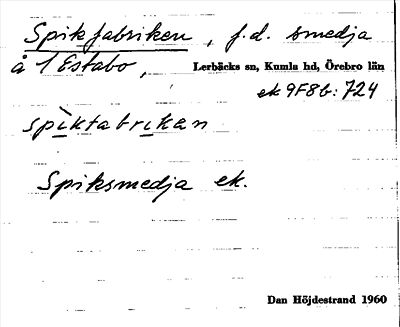 Spikfabriken, f.d. smedja
å 1 Estabo, Lerbäcks sn, Kumla hd, Örebro län
ek 9F8b:724
spìkfabrikan
Spiksmedja ek.
Dan Höjdestrand 1960